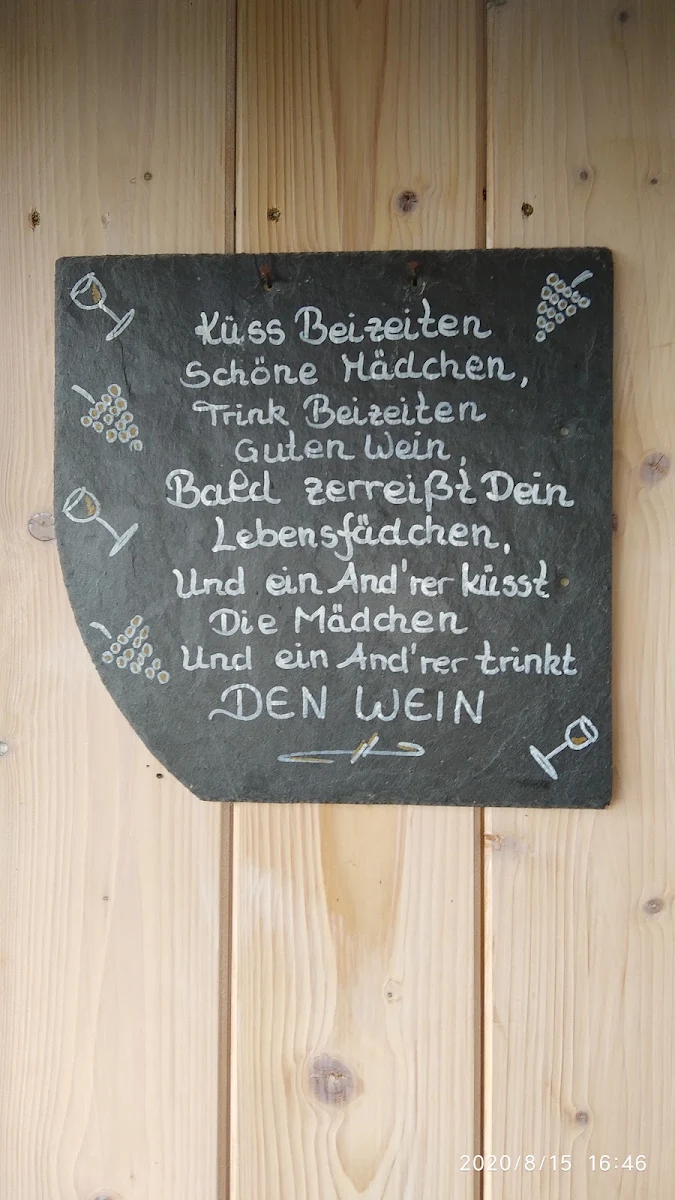 Küss Beizeiten
Schöne Mädchen,
Trink Beizeiten
Guten Wein,
Bald zerreißt Dein
Lebensfädchen,
Und ein And'rer küsst
Die Mädchen
Und ein And'rer trinkt
DEN WEIN
2020/8/15 16:46